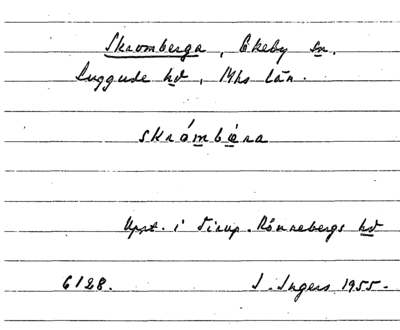 Skromberga, Ekeby sn.
Luggude hd, Mhs län.
skrómbæra
Uppt. i Tirup. Rönnebergs hd
6128. I. Ingers 1955.